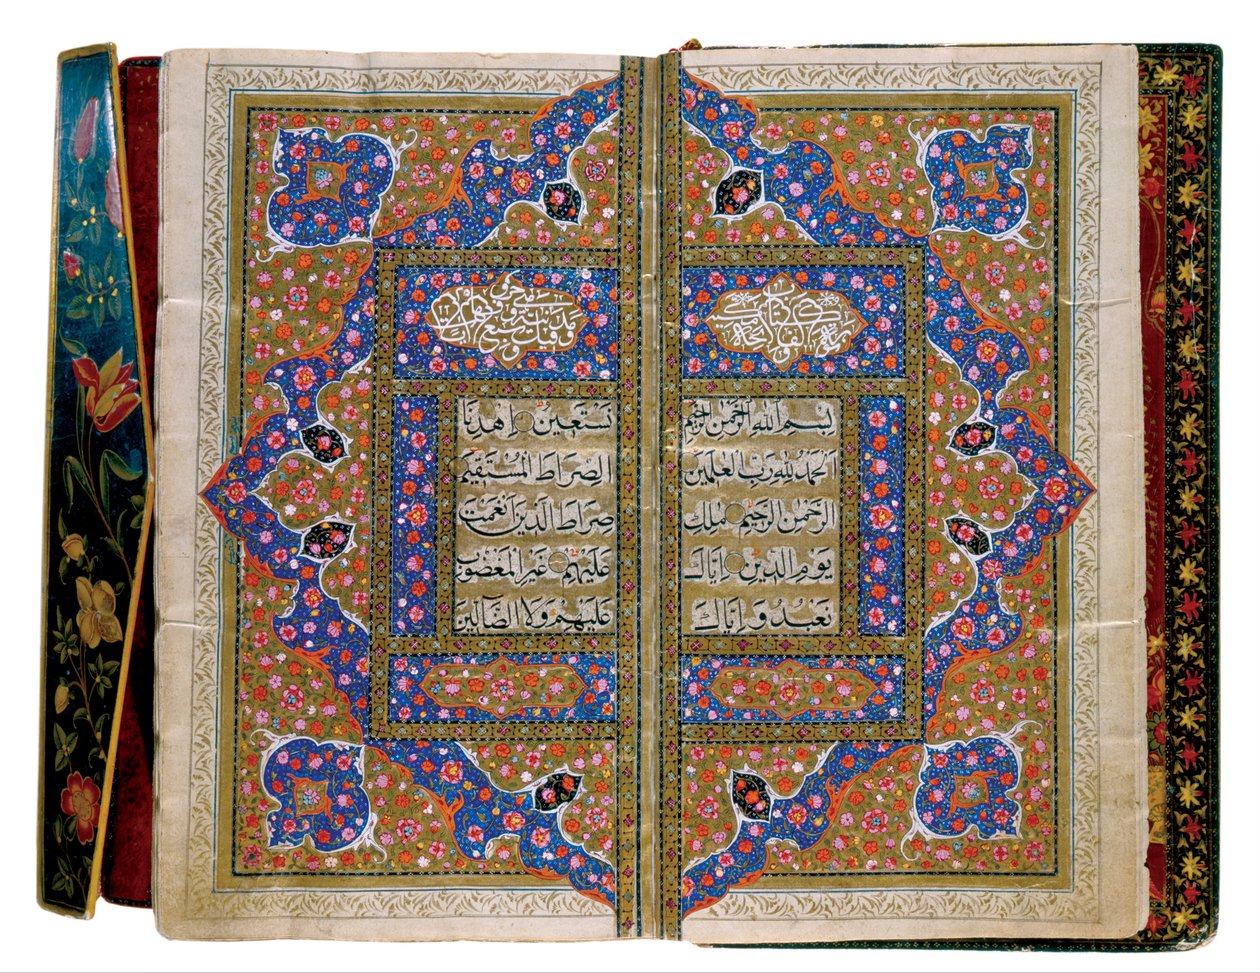 بِسْمِ اللهِ الرَّحْمٰنِ الرَّحِيْمِ
اَلْحَمْدُ لِلّٰهِ رَبِّ الْعٰلَمِيْنَ
الرَّحْمٰنِ الرَّحِيْمِ مٰلِكِ
يَوْمِ الدِّيْنِ اِيَّاكَ
نَعْبُدُ وَ اِيَّاكَ
نَسْتَعِيْنُ اِهْدِنَا
الصِّرَاطَ الْمُسْتَقِيْمَ
صِرَاطَ الَّذِيْنَ اَنْعَمْتَ
عَلَيْهِمْ غَيْرِ الْمَغْضُوْبِ
عَلَيْهِمْ وَلَا الضَّآلِّيْنَ